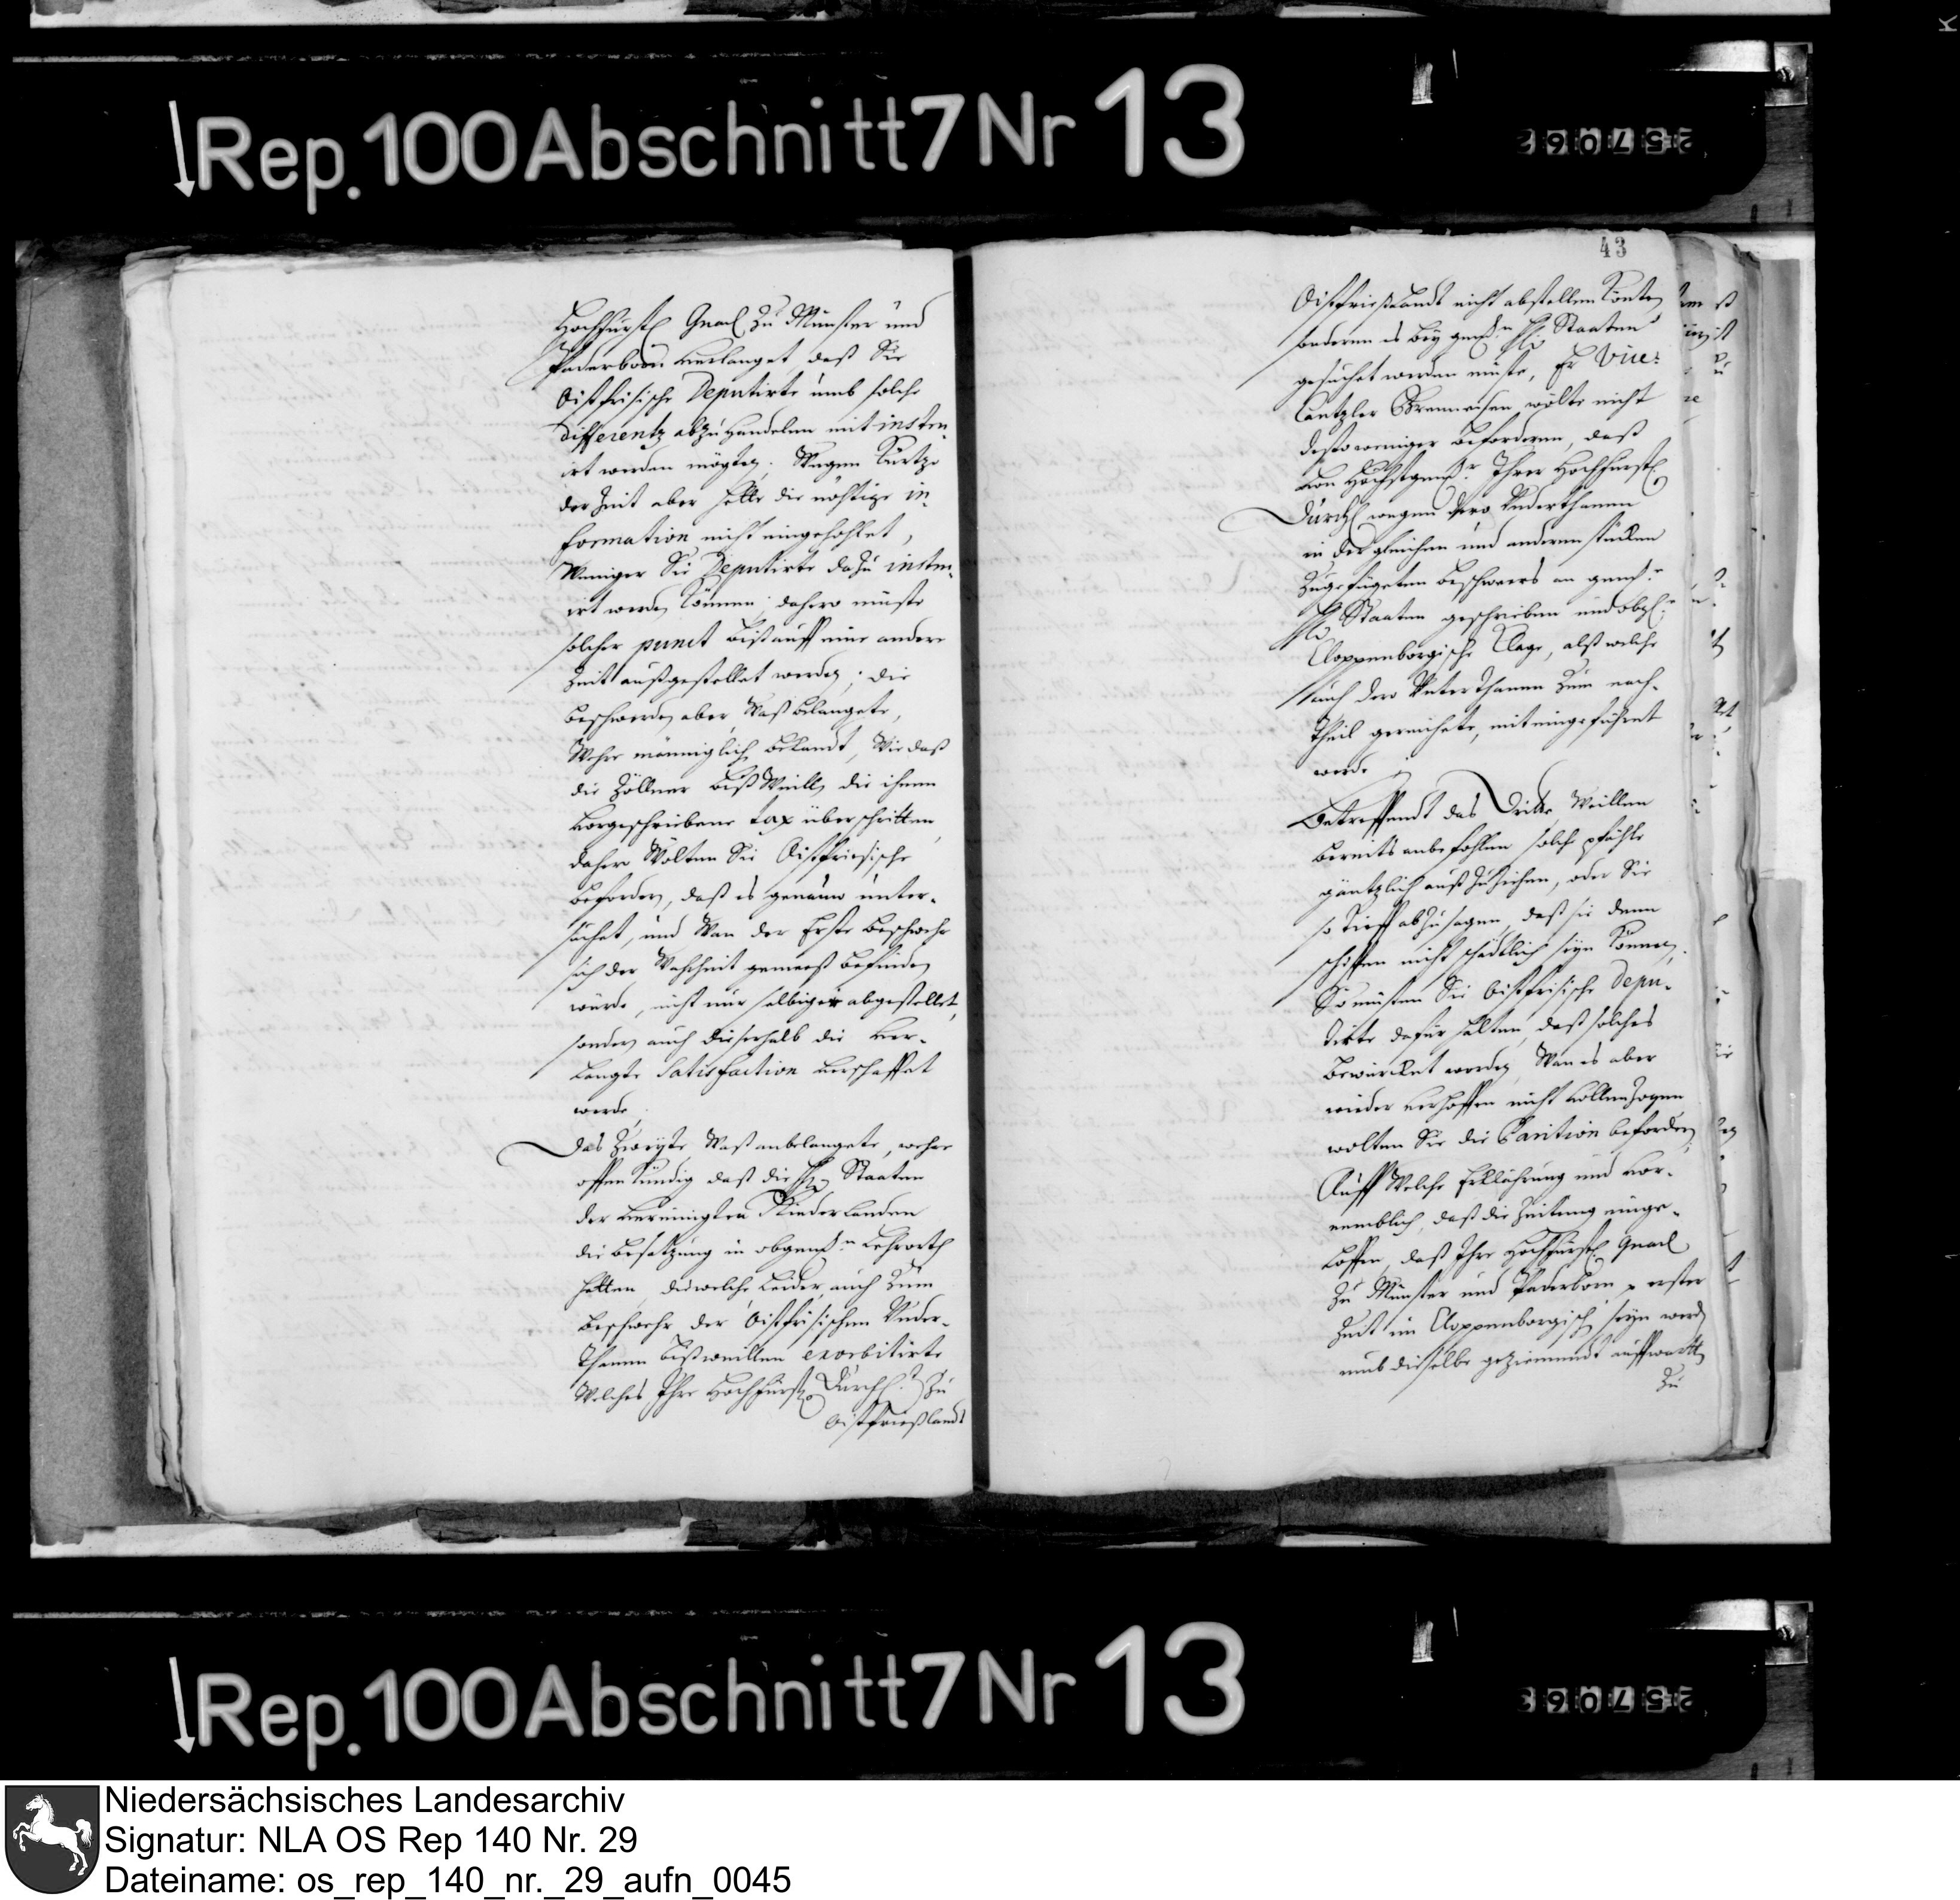 Rep. 100 Abschnitt 7 Nr 13
257062
Hochfürstl Gnad zu Münster und
Paderborn verlanget, daß Sie
Ostfrisische Deputirte umb solche
differentz abzuhandelen mit instru-
irt werden mögten. Wegen Kurtze
der Zeit aber hette die nöhtige in-
formation nicht eingehohlet,
Weniger Sie Deputirte dazu instru-
irt werden können, dahero müste
solcher punct biß auff eine andere
Zeit außgestellet werden; die
beschwerden aber, Waß belangete,
Wehre männiglich bekandt, Wie daß
die Zöllner biß Weilln die ihnen
vorgeschriebene tax überschritten,
dahero Wolten Sie Ostfriesische
befordern, daß es genauw unter-
suchet, und Wan der Erste beschwehr
sich der Wahrheit gemeeß befinden
würde, nicht nur selbiger abgestellet,
sondern auch dieserhalb die ver-
langte Satisfaction verschaffet
werde,
das Zweyte, Waß anbelangete, wehre
offenkündig daß die HH. Staaten
der Vereinigten Niederlanden
die besatzung in obgemn Lehrorth
hetten, die welche leider, auch zum
beschwehr der Ostfrisischen Under-
thanen bißweillen exorbitirte
Welches Ihre Hochfürstl Durchl. zu
Ostfrießlandt
43
Ostfrießlandt nicht abstellen könte,
sonderen es bey gemn HH Staaten
gesuchet werden müste, Er Vice-
Cantzler Brenneisen wolte nicht
destoweniger beforderen, daß
von Höchstgemr. Ihrer Hochfürstl
Durchl wegen dero Underthanen
in dergleichen und anderen stücken
zugefügeten beschwers an gemel.
HH Staaten geschrieben und obgl.
Cloppenborgische Klage, alß welche
auch dero Unterthanen zum nach-
theil gereichete, mit eingeführet
werde
Betreffendt das Dritte, Weillen
bereits anbefohlen solche pfähle
gäntzlich auß zu ziehen, oder Sie
so tieff abzusagen, daß sie denn
schiffen nicht schädtlich seyn können,
So müsten Sie Ostfrisische Depu-
tirte dafür halten, daß solches
bewürcket worden, Wan es aber
wieder verhoffen nicht vollenzogen
wolten Sie die Parition beforderen,
Auff Welche Erklährung und vor-
nemblich, daß die Zeitung einge-
loffen, daß Ihre Hochfürstl. Gnad
zu Münster und Paderborn erster
Zeit im Cloppenborgisch seyn werd
umb dieselbe geziemendt auffwart
zu
Rep. 100 Abschnitt 7 Nr 13
257063
Niedersächsisches Landesarchiv
Signatur: NLA OS Rep 140 Nr. 29
Dateiname: os_rep_140_nr._29_aufn_0045